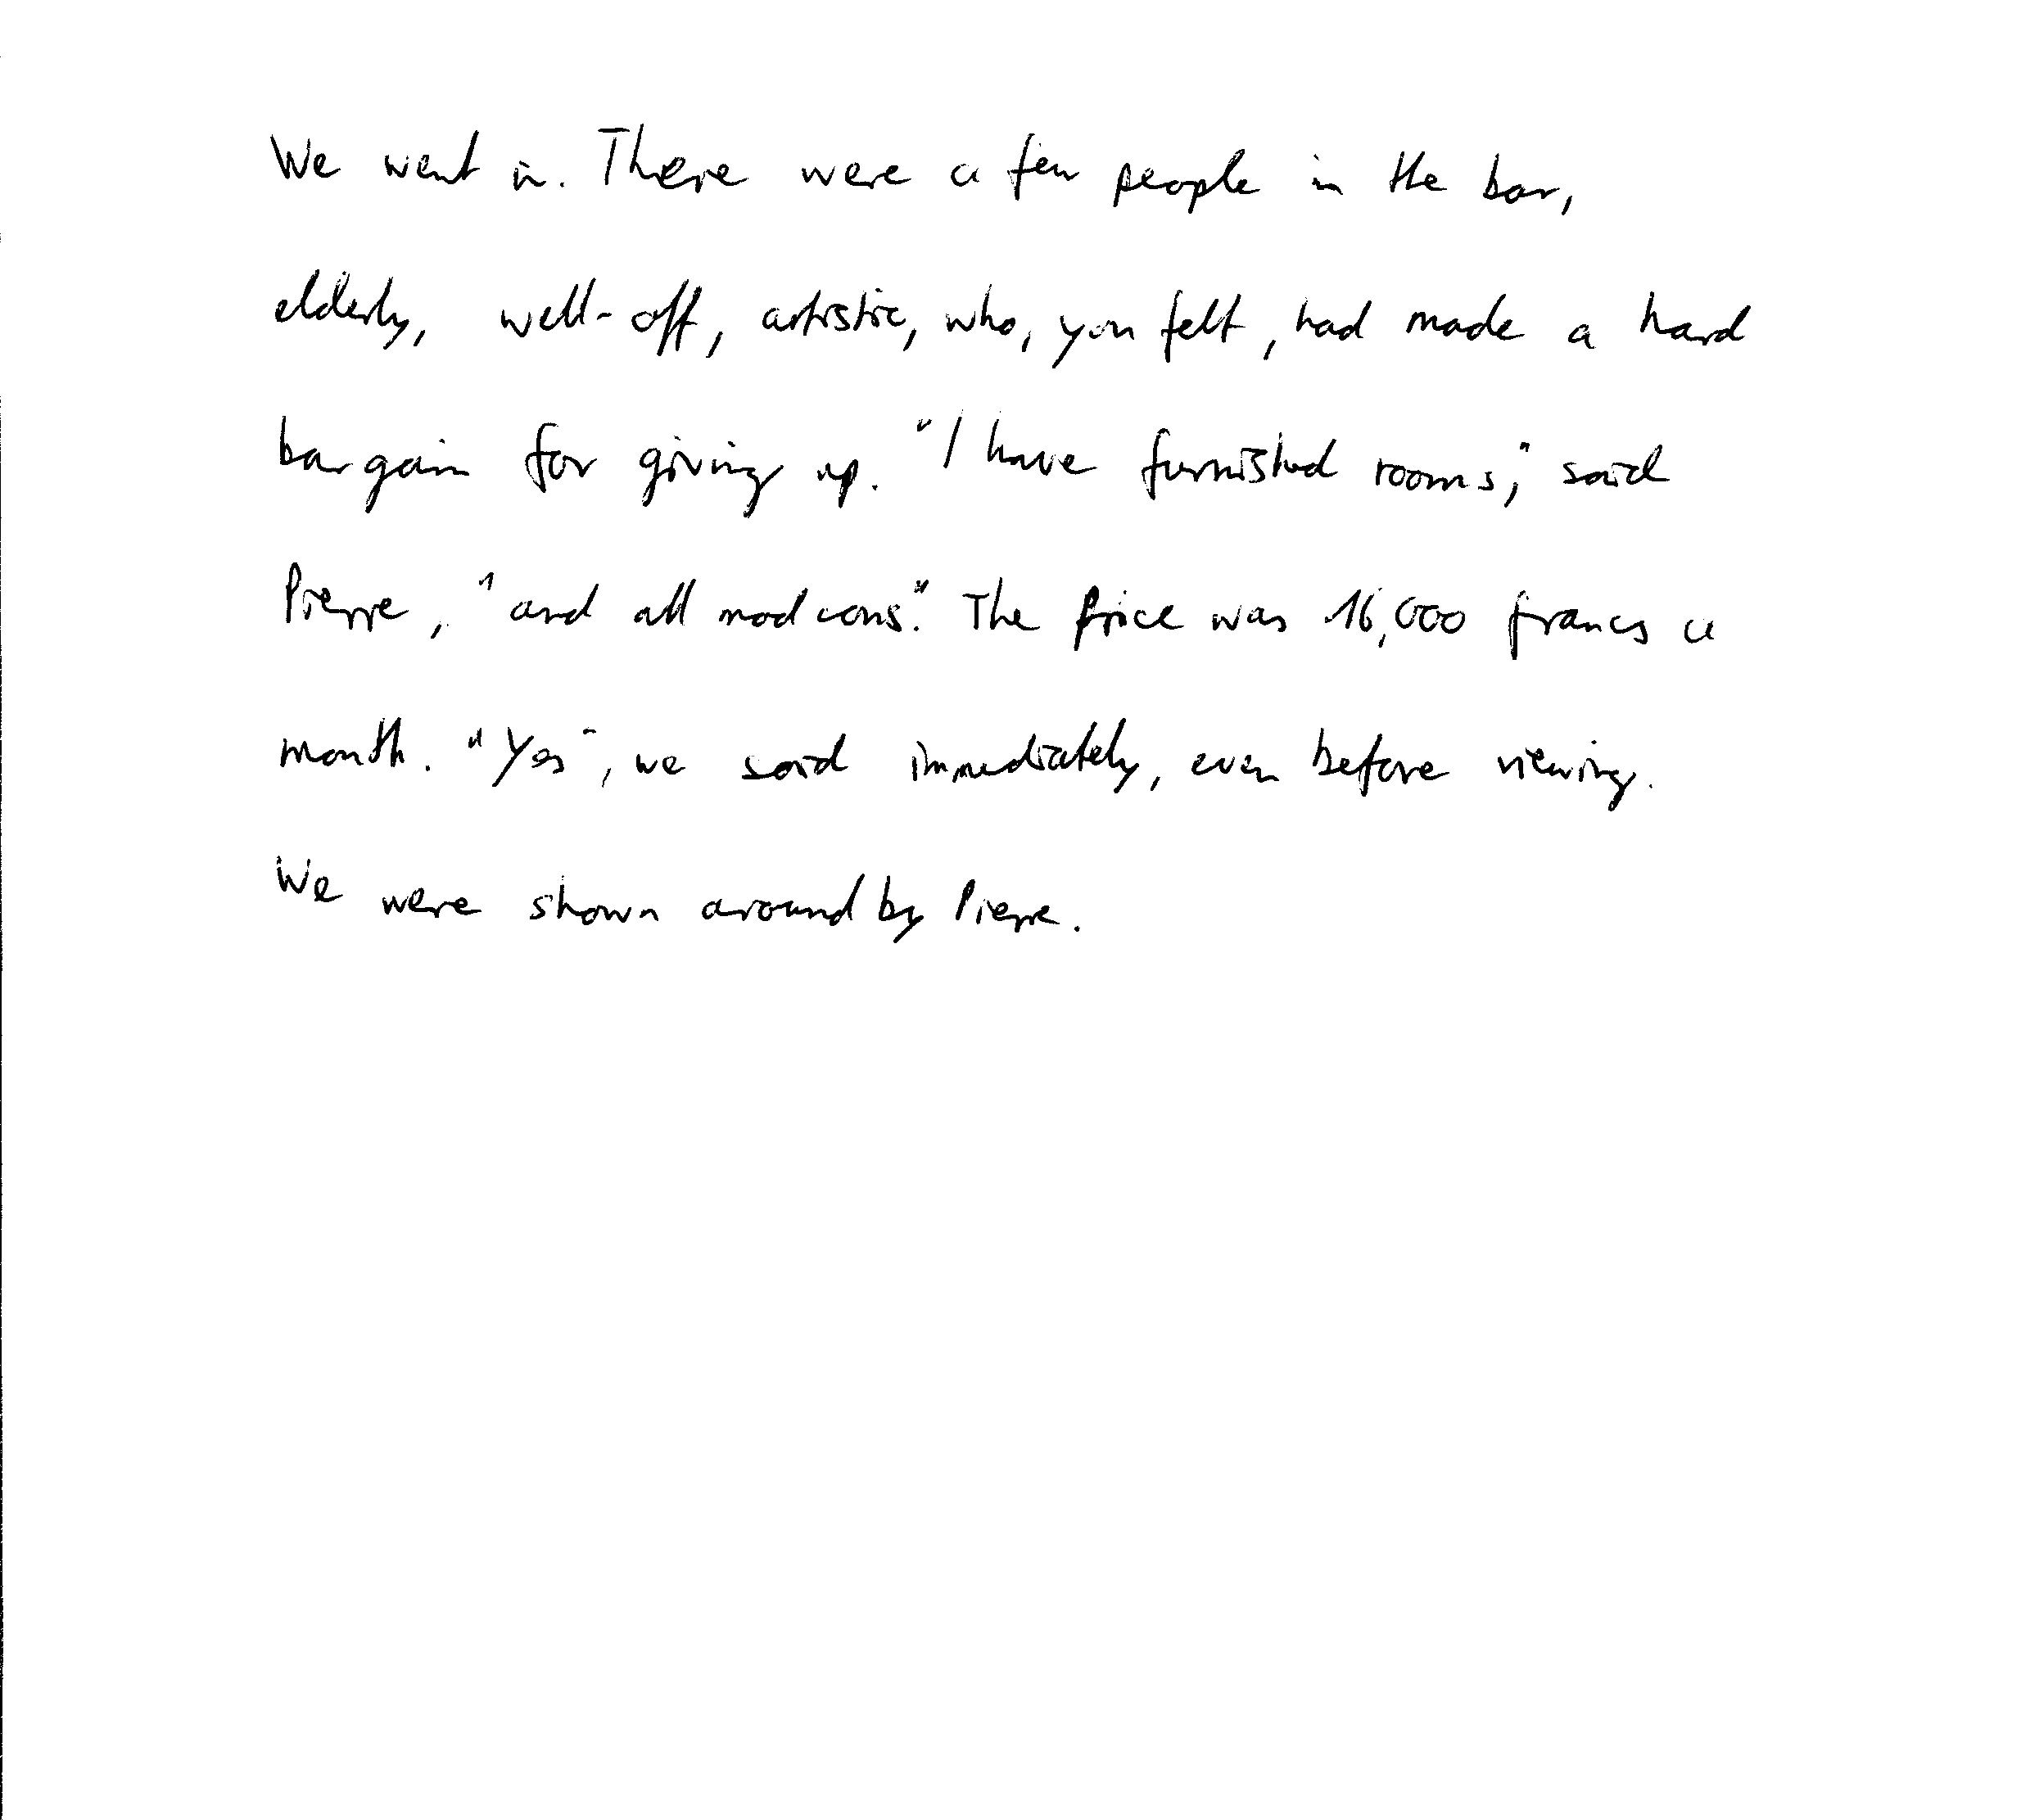 We went in. There were a few people in the bar,
elderly, well-off, artistic, who, you felt, had made a hard
bargain for giving up. "I have furnished rooms," said
Pierre, "and all mod cons." The price was 16,000 francs a
month. "Yes", we said immediately, even before viewing.
We were shown around by Pierre.